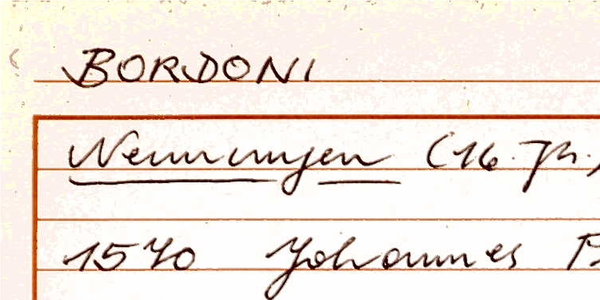 BORDONI
Nenningen (16. Jh.)
1570 Johannes